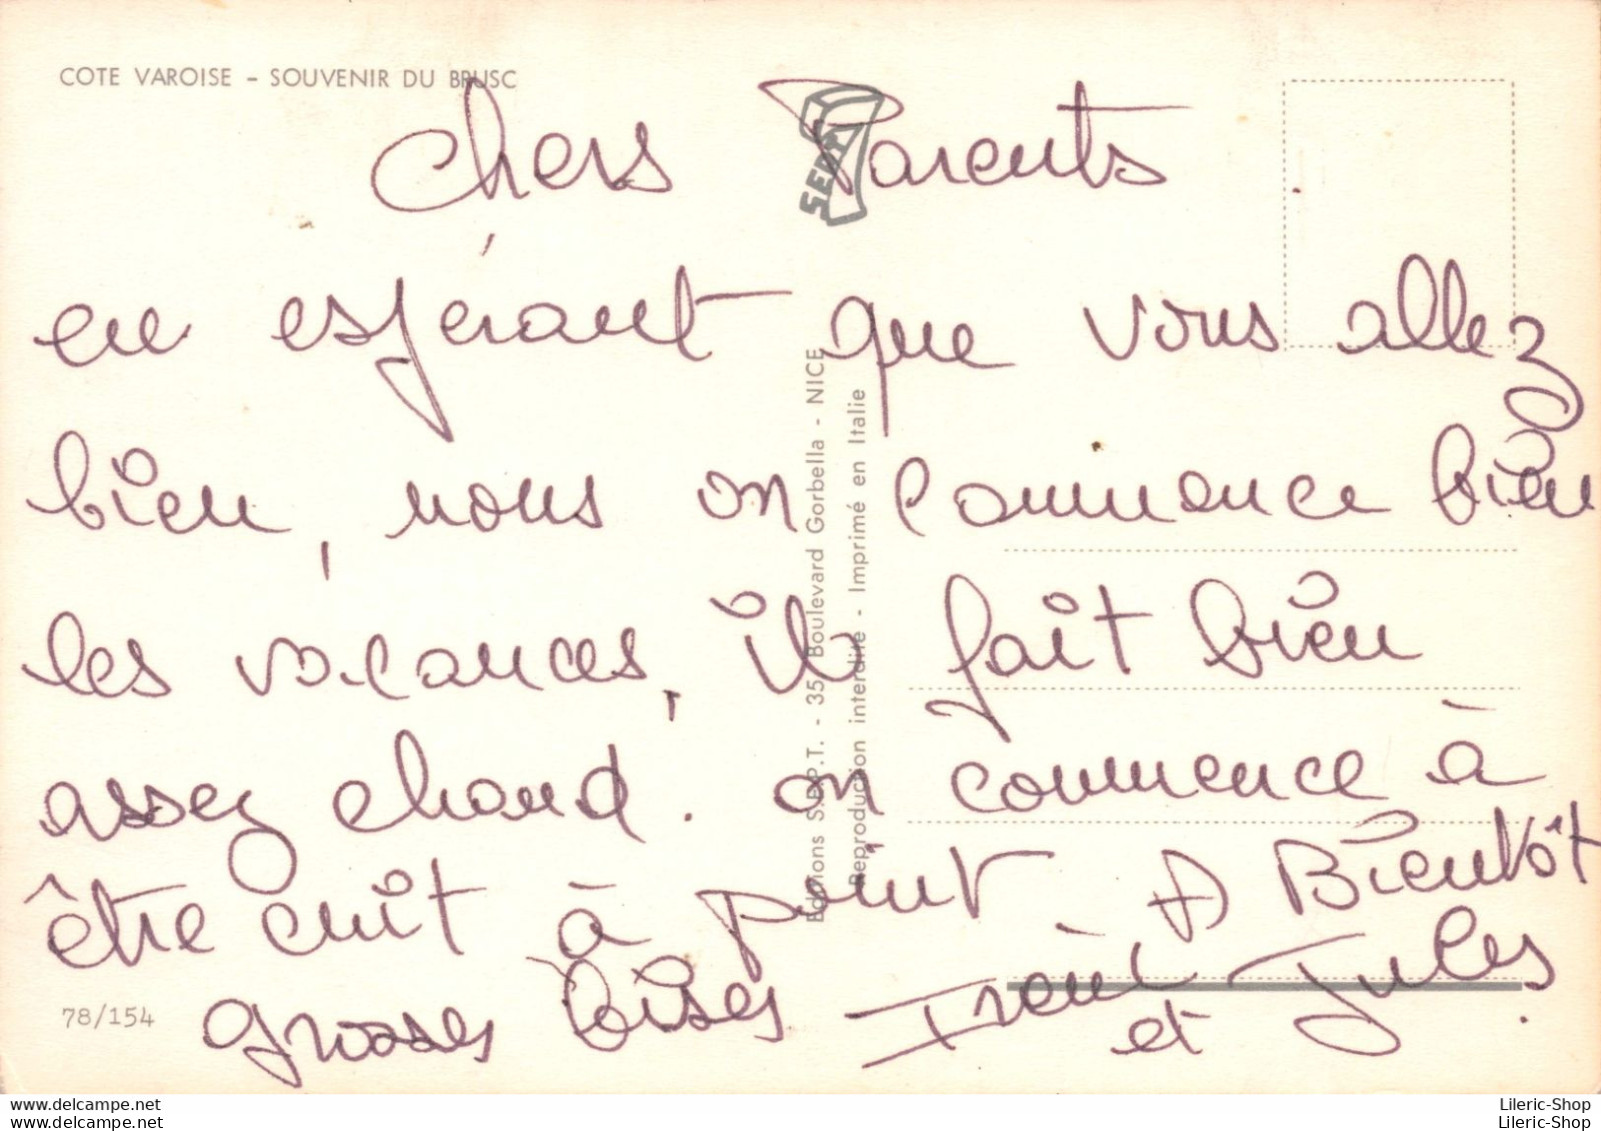 COTE VAROISE - SOUVENIR DU BRUSC
Chers Parents
en espérant que vous allez
bien, nous on commence bien
les vacances, il fait bien
assez chaud. on commence à
être cuit à point A Bientôt
grosses bises Irène et Jules
SEPT
Editions S.E.P.T. - 35 Boulevard Gorbella - NICE
Reproduction interdite - Imprimé en Italie
78/154
Lileric-Shop
Lileric-Shop
www.delcampe.net
www.delcampe.net